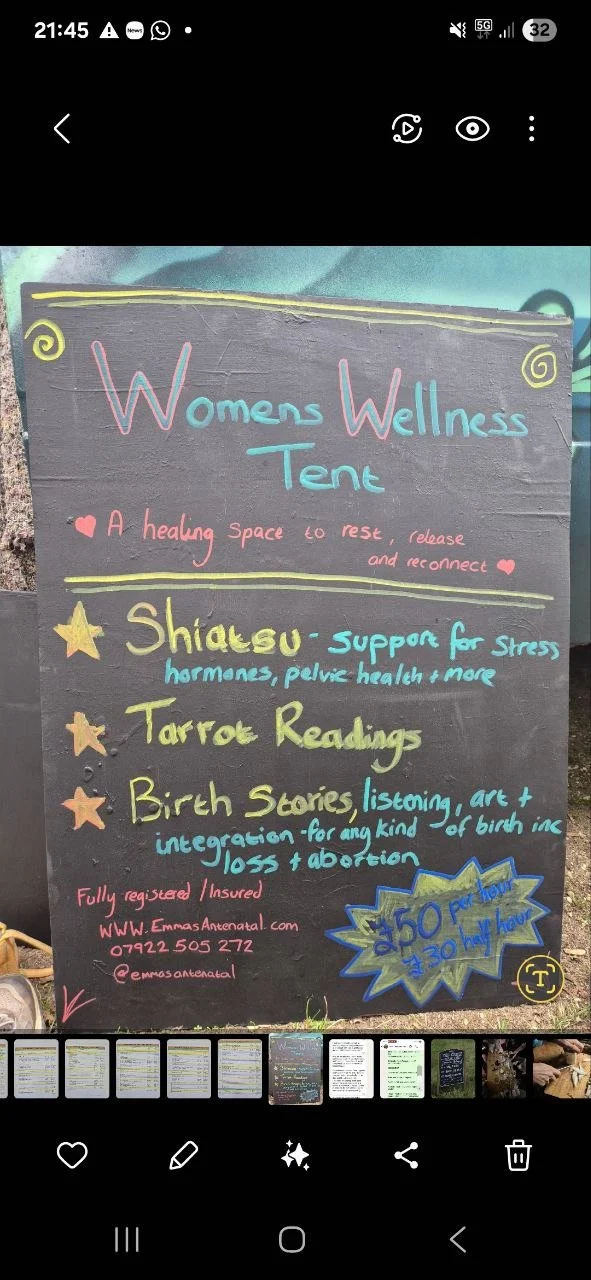 21:45
News
5G
32
Womens Wellness
Tent
A healing space to rest, release
and reconnect
Shiatsu - support for stress
hormones, pelvic health + more
Tarrot Readings
Birth Stories, listening, art +
integration - for any kind of birth inc
loss + abortion
Fully registered / Insured
WWW.EmmasAntenatal.com
07922 505 272
@emmasantenatal
£50 per hour
£30 half hour
T